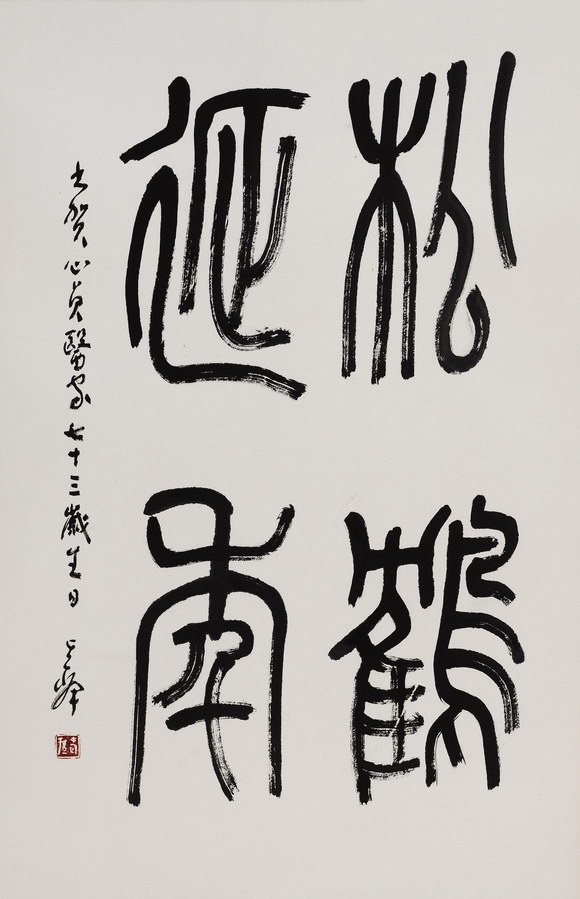 松鶴
延年
書賀心貞醫家七十三歲生日
峰